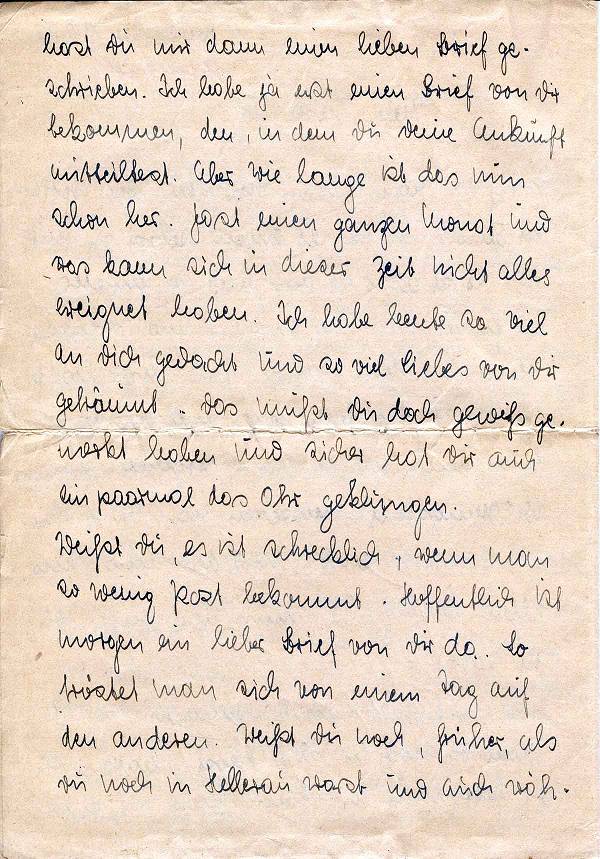 hast Du mir dann einen lieben Brief ge-
schrieben. Ich habe ja erst einen Brief von Dir
bekommen, den, in dem Du Deine Ankunft
mitteiltest. Aber wie lange ist das nun
schon her. Fast einen ganzen Monat und
was kann sich in dieser Zeit nicht alles
ereignet haben. Ich habe heute so viel
an Dich gedacht und so viel Liebes von Dir
geträumt. Das mußt Du doch gewiß ge-
merkt haben und sicher hat Dir auch
ein paarmal das Ohr geklungen.
Weißt Du, es ist schrecklich, wenn man
so wenig Post bekommt. Hoffentlich ist
morgen ein lieber Brief von Dir da. So
tröstet man sich von einem Tag auf
den anderen. Weißt Du noch, früher, als
Du noch in Hellerau warst und auch wäh-